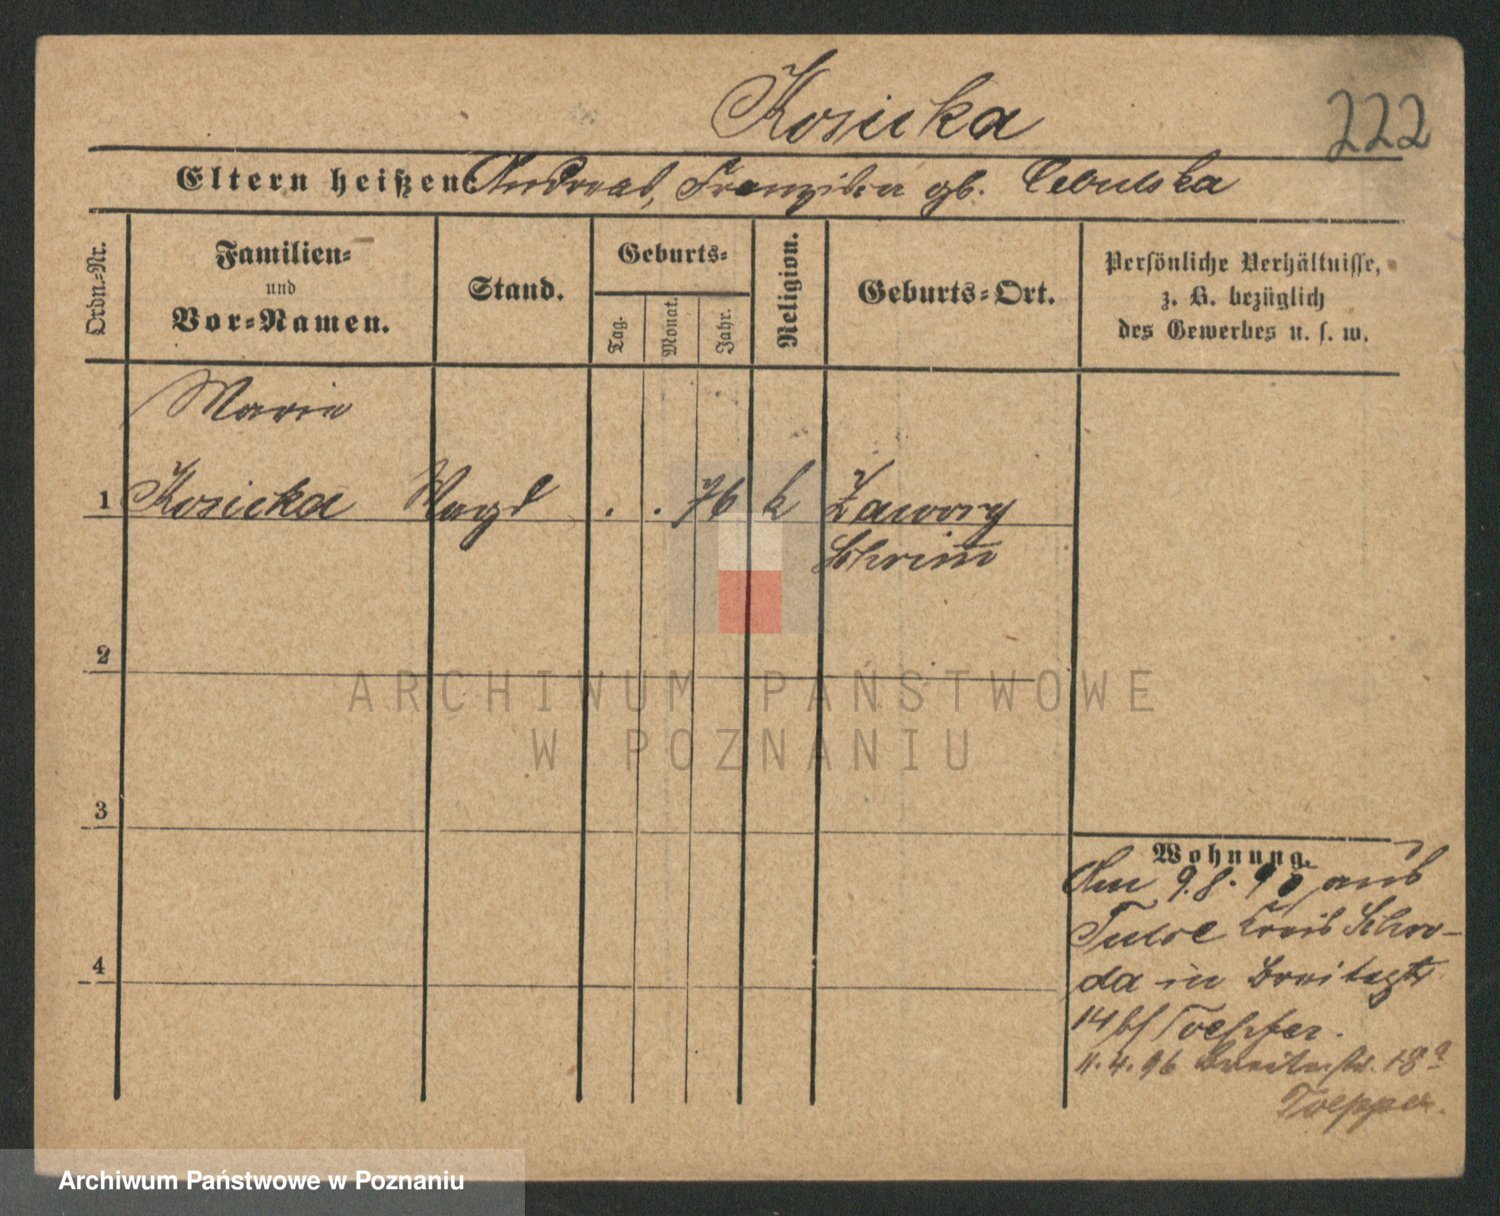 Kosicka
222
Eltern heißen: Andreas, Franziska gb. Cebulska
Ordn.-Nr.
Familien-
und
Vor-Namen.
Stand.
Geburts-
Tag.
Monat.
Jahr.
Religion.
Geburts-Ort.
Persönliche Verhältnisse,
z. B. bezüglich
des Gewerbes u. s. w.
Marie
1 Kosicka Magd . . 76 k Zawory
Schrimm
2
ARCHIWUM PAŃSTWOWE
W POZNANIU
3
Wohnung.
Am 9.8.95 aus
Tulce Kreis Schro-
da in Breitestr
14 bei Toepfer.
11.4.96 Breitestr. 18a
Toepper.
4
Archiwum Państwowe w Poznaniu